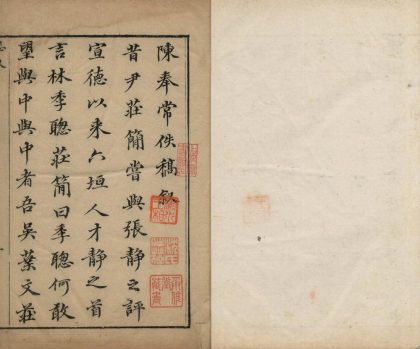 陳奉常佚稿敘
昔尹莊簡嘗與張靜之評
宣德以來六垣人才靜之首
言林季聰莊簡曰季聰何敢
望與中與中者吾吳葉文莊